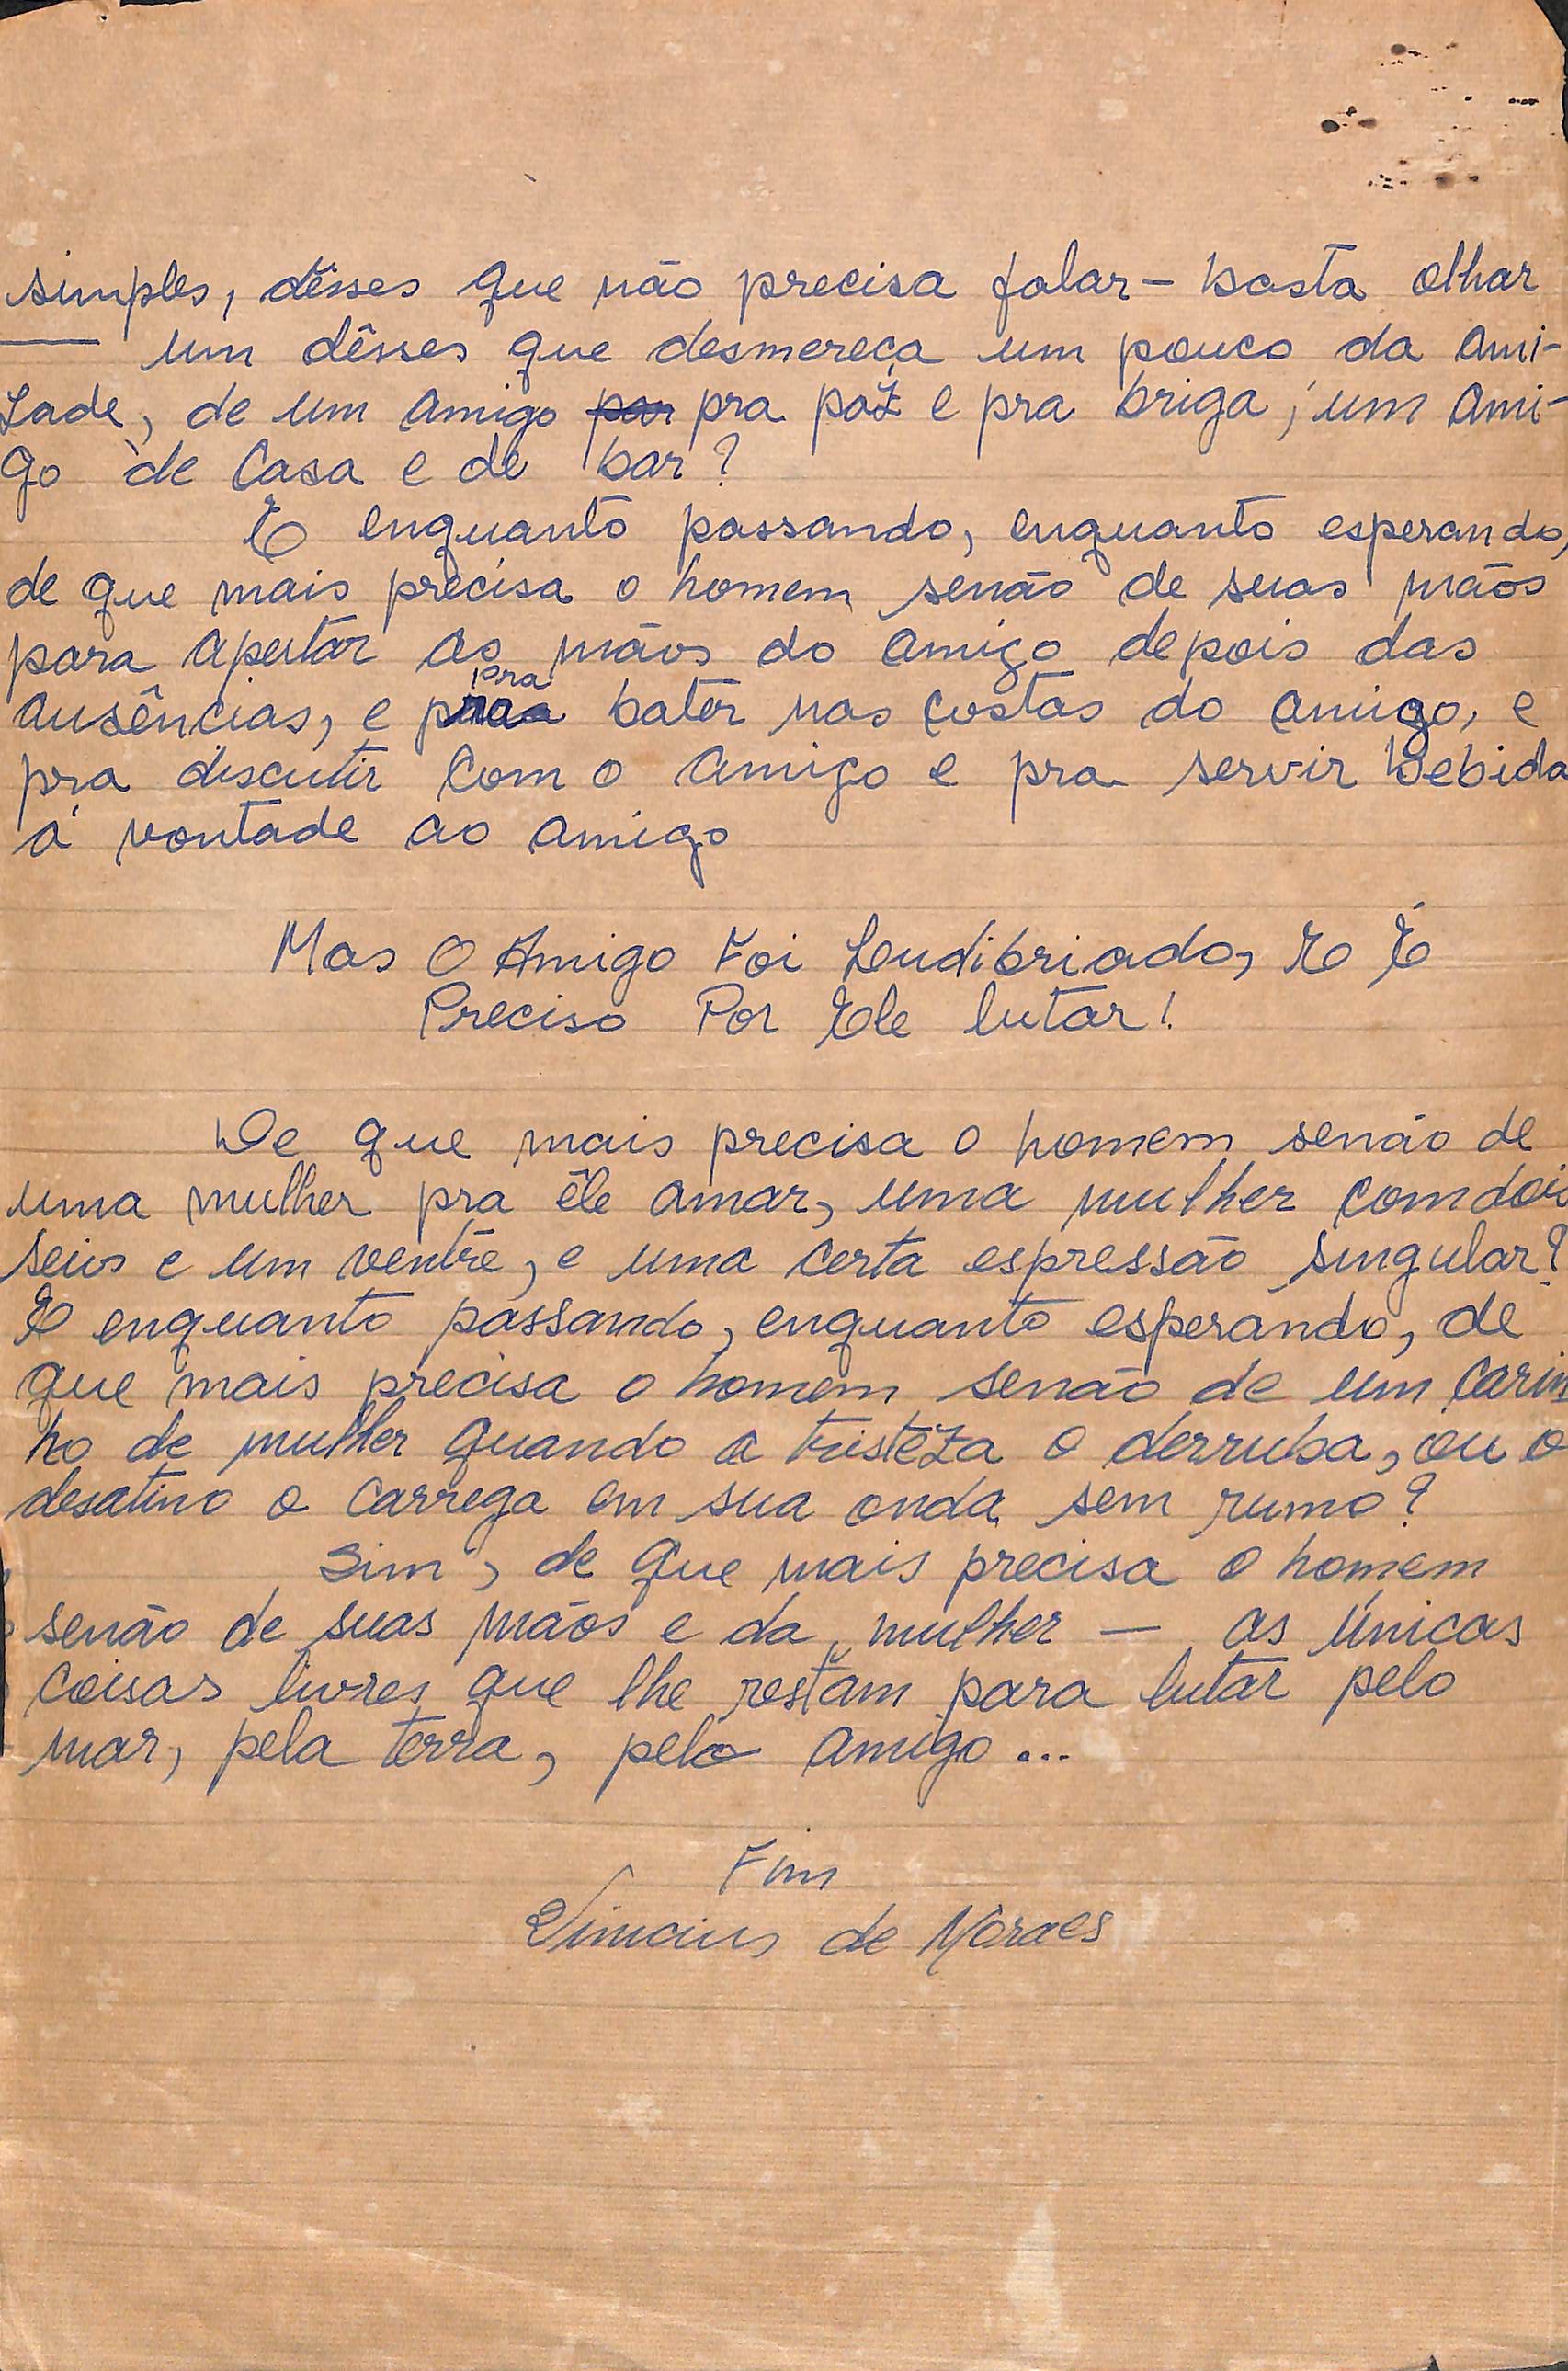 simples, dêsses que não precisa falar - basta olhar
— um dêsses que desmereça um pouco da ami-
zade, de um amigo par pra paz e pra briga, um ami-
go de casa e de bar?
E enquanto passando, enquanto esperando,
de que mais precisa o homem senão de suas mãos
para apertar as mãos do amigo depois das
ausências, e pra bater nas costas do amigo, e
pra discutir com o amigo e pra servir bebida
á vontade ao amigo
Mas O Amigo Foi Ludibriado, E É
Preciso Por Ele lutar!
De que mais precisa o homem senão de
uma mulher pra êle amar, uma mulher com dois
seios e um ventre, e uma certa espressão singular?
E enquanto passando, enquanto esperando, de
que mais precisa o homem senão de um carin
ho de mulher quando a tristeza o derruba, ou o
desatino o carrega em sua onda sem rumo?
Sim, de que mais precisa o homem
senão de suas mãos e da mulher — as únicas
coisas livres que lhe restam para lutar pelo
mar, pela terra, pelo amigo...
Fim
Vinicius de Moraes